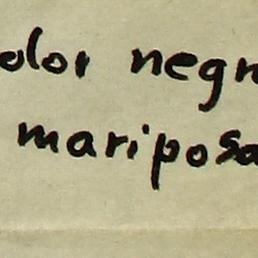 olor negr
mariposa